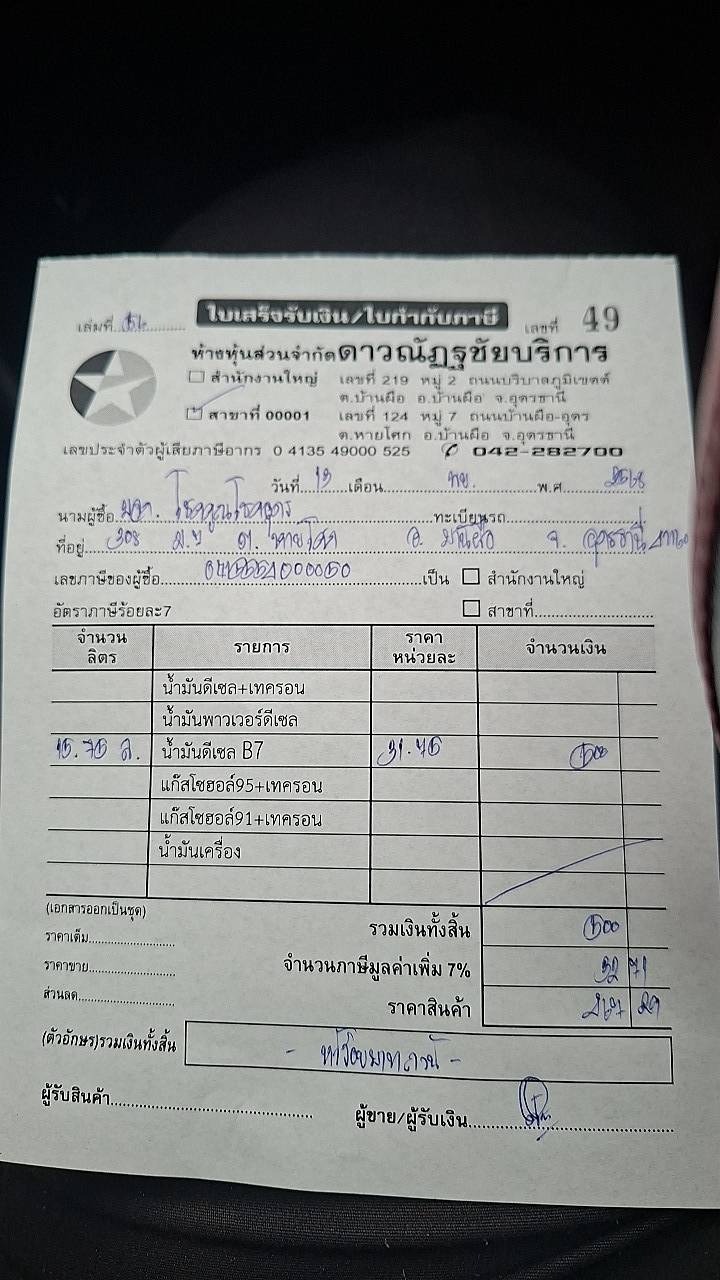 ใบเสร็จรับเงิน/ใบกำกับภาษี
เล่มที่ เลขที่ 49
ห้างหุ้นส่วนจำกัดดาวณัฏฐชัยบริการ
สำนักงานใหญ่ เลขที่ 219 หมู่ 2 ถนนบริบาลภูมิเขตต์
ต.บ้านผือ อ.บ้านผือ จ.อุดรธานี
สาขาที่ 00001 เลขที่ 124 หมู่ 7 ถนนบ้านผือ-อุดร
ต.หายโศก อ.บ้านผือ จ.อุดรธานี
เลขประจำตัวผู้เสียภาษีอากร 0 4135 49000 525 042-282700
วันที่ 13 เดือน พย. พ.ศ. 2568
นามผู้ซื้อ ทะเบียนรถ
ที่อยู่ 308 ต. หายโศก อ. บ้านผือ จ. อุดรธานี
เลขภาษีของผู้ซื้อ เป็น สำนักงานใหญ่
อัตราภาษีร้อยละ7 สาขาที่
จำนวนลิตร รายการ ราคาหน่วยละ จำนวนเงิน
น้ำมันดีเซล+เทครอน
น้ำมันพาวเวอร์ดีเซล
15.75 ล. น้ำมันดีเซล B7 31.75 500
แก๊สโซฮอล์95+เทครอน
แก๊สโซฮอล์91+เทครอน
น้ำมันเครื่อง
(เอกสารออกเป็นชุด)
รวมเงินทั้งสิ้น 500
ราคาเต็ม
จำนวนภาษีมูลค่าเพิ่ม 7% 32 71
ราคาขาย
ราคาสินค้า 467 29
ส่วนลด
(ตัวอักษร)รวมเงินทั้งสิ้น - ห้าร้อยบาทถ้วน -
ผู้รับสินค้า ผู้ขาย/ผู้รับเงิน